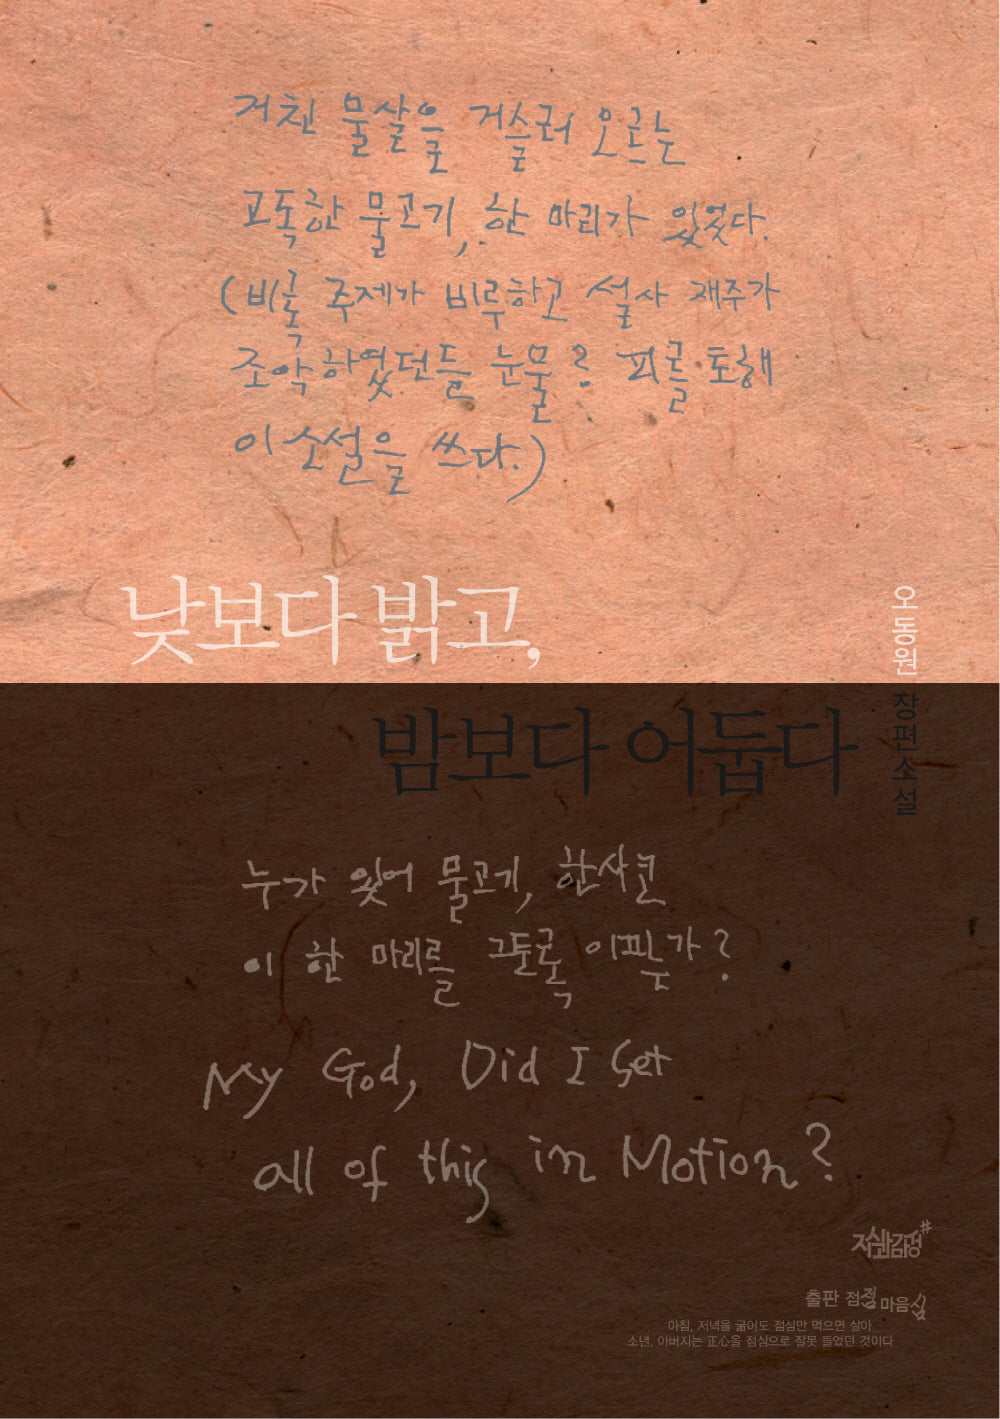 거친 물살을 거슬러 오르는
고독한 물고기, 한 마리가 있었다.
(비록 주제가 비루하고 설사 재주가
조악하였던들 눈물? 피를 토해
이 소설을 쓰다.)
낮보다 밝고,
밤보다 어둡다
오동원 장편소설
누가 있어 물고기, 한사코
이 한 마리를 그토록 이끄는가?
My God, Did I Set
all of this in Motion?
지식과감정#
출판 점점 마음심
아침, 저녁을 굶어도 점심만 먹으면 살아
소년, 아버지는 正心을 점심으로 잘못 들었던 것이다